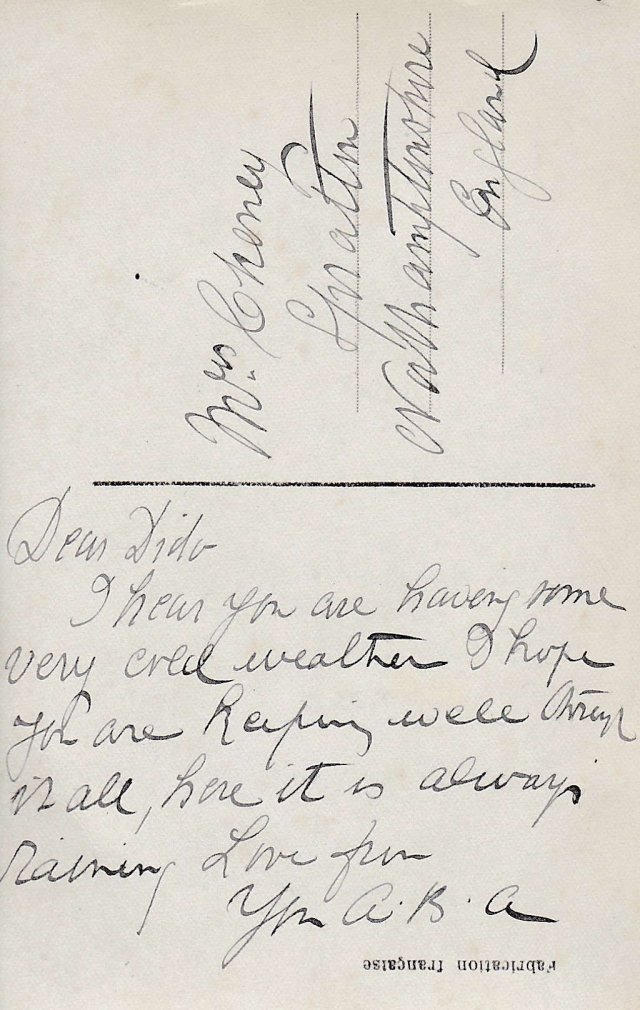 Mrs. Cheney
Spratton
Northamptonshire
England
Dear Dido
I hear you are having some
very cold weather I hope
you are keeping well through
it all, here it is always
raining Love from
You A. B. A
Fabrication française